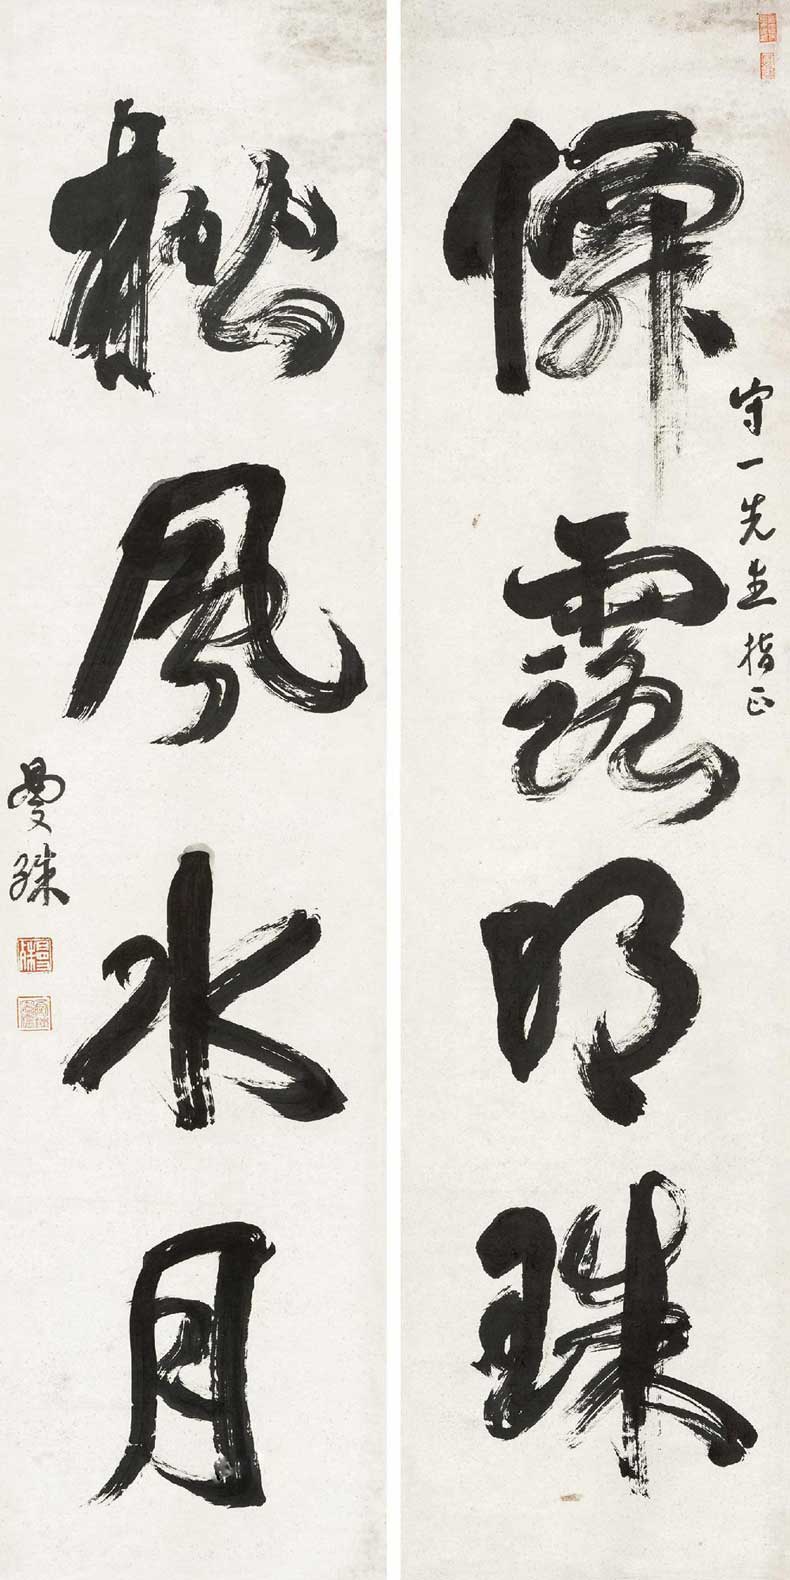 守一先生指正
僊露明珠
松風水月
曼殊